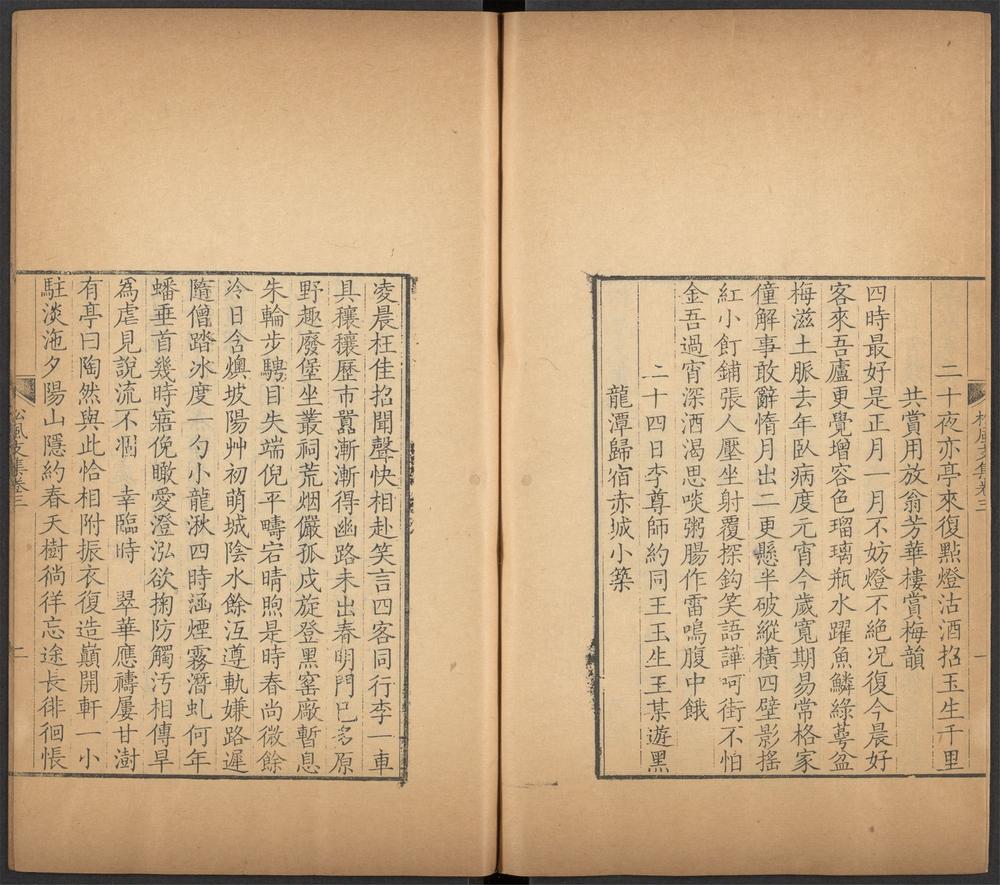 二十夜亦亭來復點燈沽酒招玉生千里
共賞用放翁芳華樓賞梅韻
四時最好是正月一月不妨燈不絕况復今晨好
客來吾廬更覺增容色瑠璃瓶水躍魚鱗綠萼盆
梅滋土脈去年臥病度元宵今歲寬期易常格家
僮解事敢辭惰月出二更懸半破縱橫四壁影搖
紅小飣鋪張人壓坐射覆探鈎笑語譁呵街不怕
金吾過宵深酒渴思啖粥腸作雷鳴腹中餓
二十四日李尊師約同王玉生王某遊黑
龍潭歸宿赤城小築
凌晨枉佳招聞聲快相赴笑言四客同行李一車
具穰穰歷市囂漸漸得幽路未出春明門已多原
野趣廢堡坐叢祠荒烟儼孤戍旋登黑窑廠暫息
朱輪步騁目失端倪平疇宕晴煦是時春尚微餘
冷日含燠坡陽艸初萌城陰水餘沍遵軌嫌路遲
隨僧踏冰度一勺小龍湫四時涵煙霧潛虬何年
蟠垂首幾時寤俛瞰愛澄泓欲掬防觸汚相傳旱
爲虐見說流不涸 幸臨時 翠華應禱屢甘澍
有亭曰陶然與此恰相附振衣復造巔開軒一小
駐淡沲夕陽山隱約春天樹徜徉忘途長徘徊悵
松風文集卷三
二